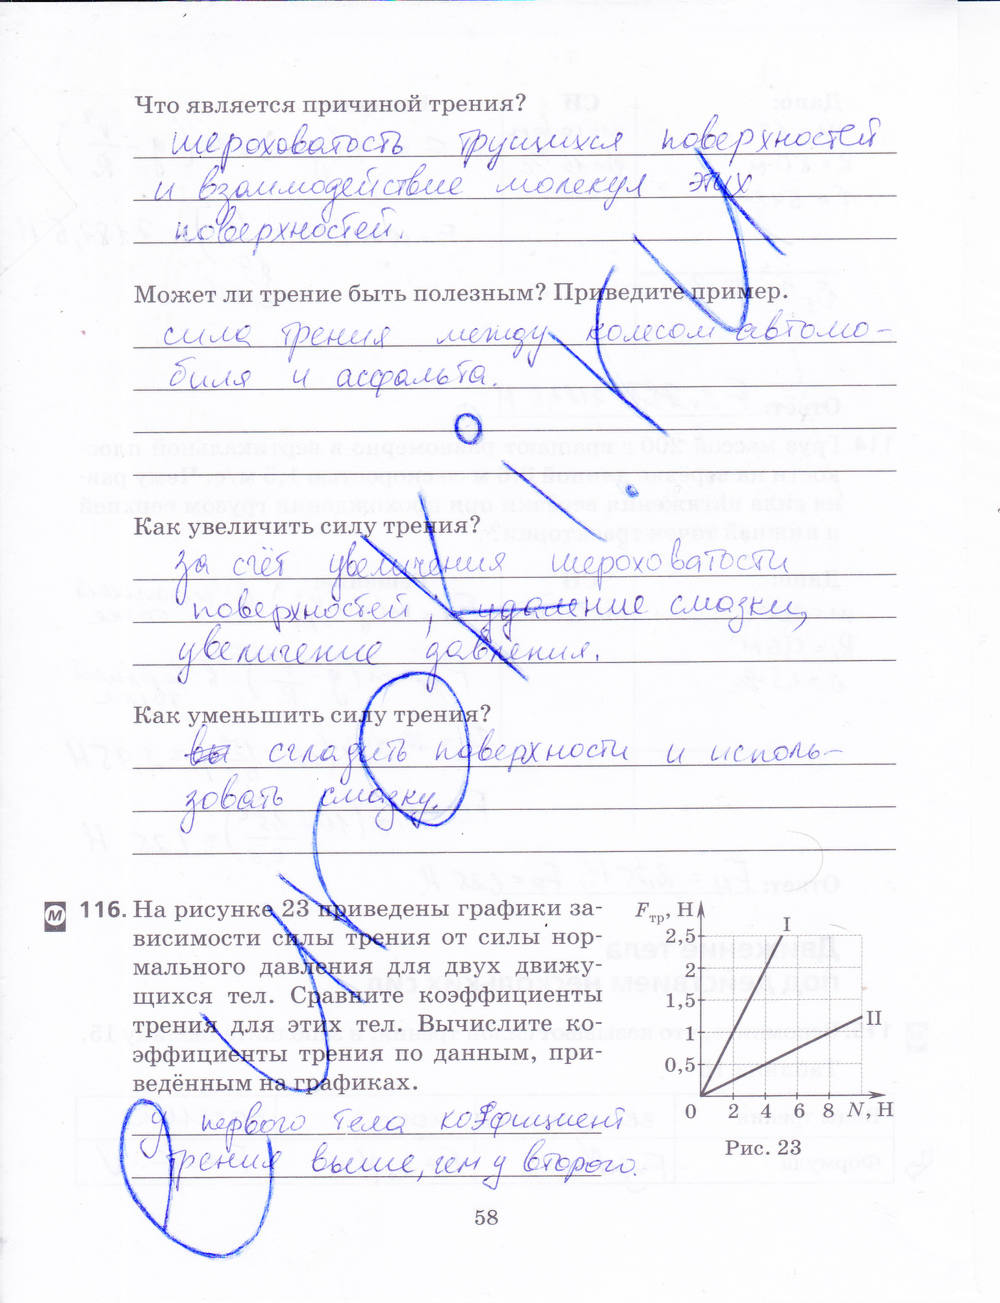 Что является причиной трения?
шероховатость трущихся поверхностей
и взаимодействие молекул этих
поверхностей.
Может ли трение быть полезным? Приведите пример.
сила трения между колесом автомо-
биля и асфальта.
Как увеличить силу трения?
за счёт увеличения шероховатости
поверхностей, удаление смазки,
увеличение давления.
Как уменьшить силу трения?
вы сгладить поверхности и исполь-
зовать смазку.
М 116. На рисунке 23 приведены графики за-
висимости силы трения от силы нор-
мального давления для двух движу-
щихся тел. Сравните коэффициенты
трения для этих тел. Вычислите ко-
эффициенты трения по данным, при-
ведённым на графиках.
У первого тела коэффициент
трения выше, чем у второго.
Fтр, Н
2,5
2
1,5
1
0,5
0 2 4 6 8 N, Н
I
II
Рис. 23
58